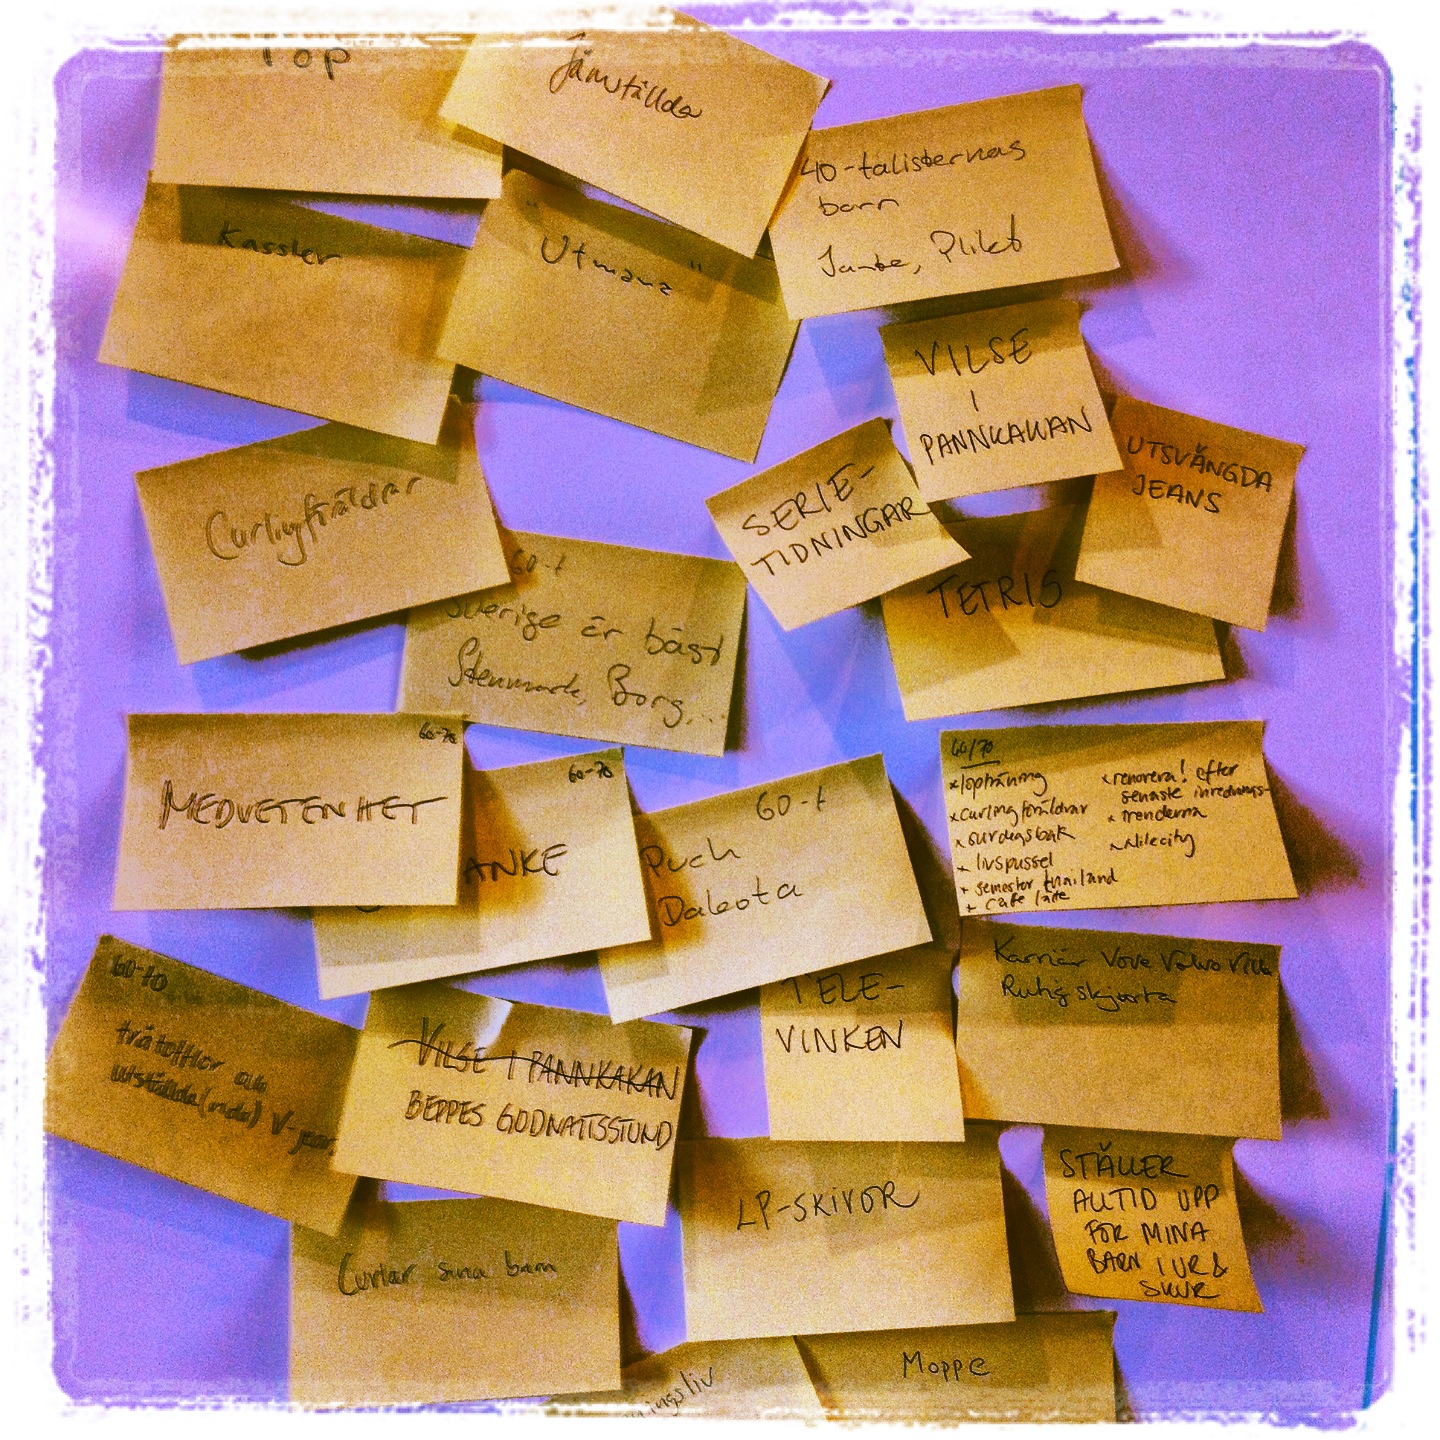 Top
Jämställda
40-talisternas
barn
Jante, Plikt
Kassler
"Utmana"
VILSE
I
PANNKAKAN
UTSVÄNGDA
JEANS
SERIE-
TIDNINGAR
TETRIS
Curlingföräldrar
60-t
Sverige är bäst
Stenmark, Borg...
60-70
MEDVETENHET
60-70
ANKE
60-t
Puch
Dakota
60/70
x löpträning
x curlingföräldrar
x surdegsbak
x livspussel
x semester thailand
x cafe latte
x renovera! efter
senaste inrednings-
x trenderna
x Nilecity
TELE-
VINKEN
Karriär Vove Volvo Villa
Rutig skjorta
60-70
trätofflor och
utställda(nda) V-jean
VILSE I PANNKAKAN
BEPPES GODNATTSSTUND
LP-SKIVOR
STÄLLER
ALLTID UPP
FÖR MINA
BARN I UR &
SKUR
Curlar sina barn
ningsliv
Moppe